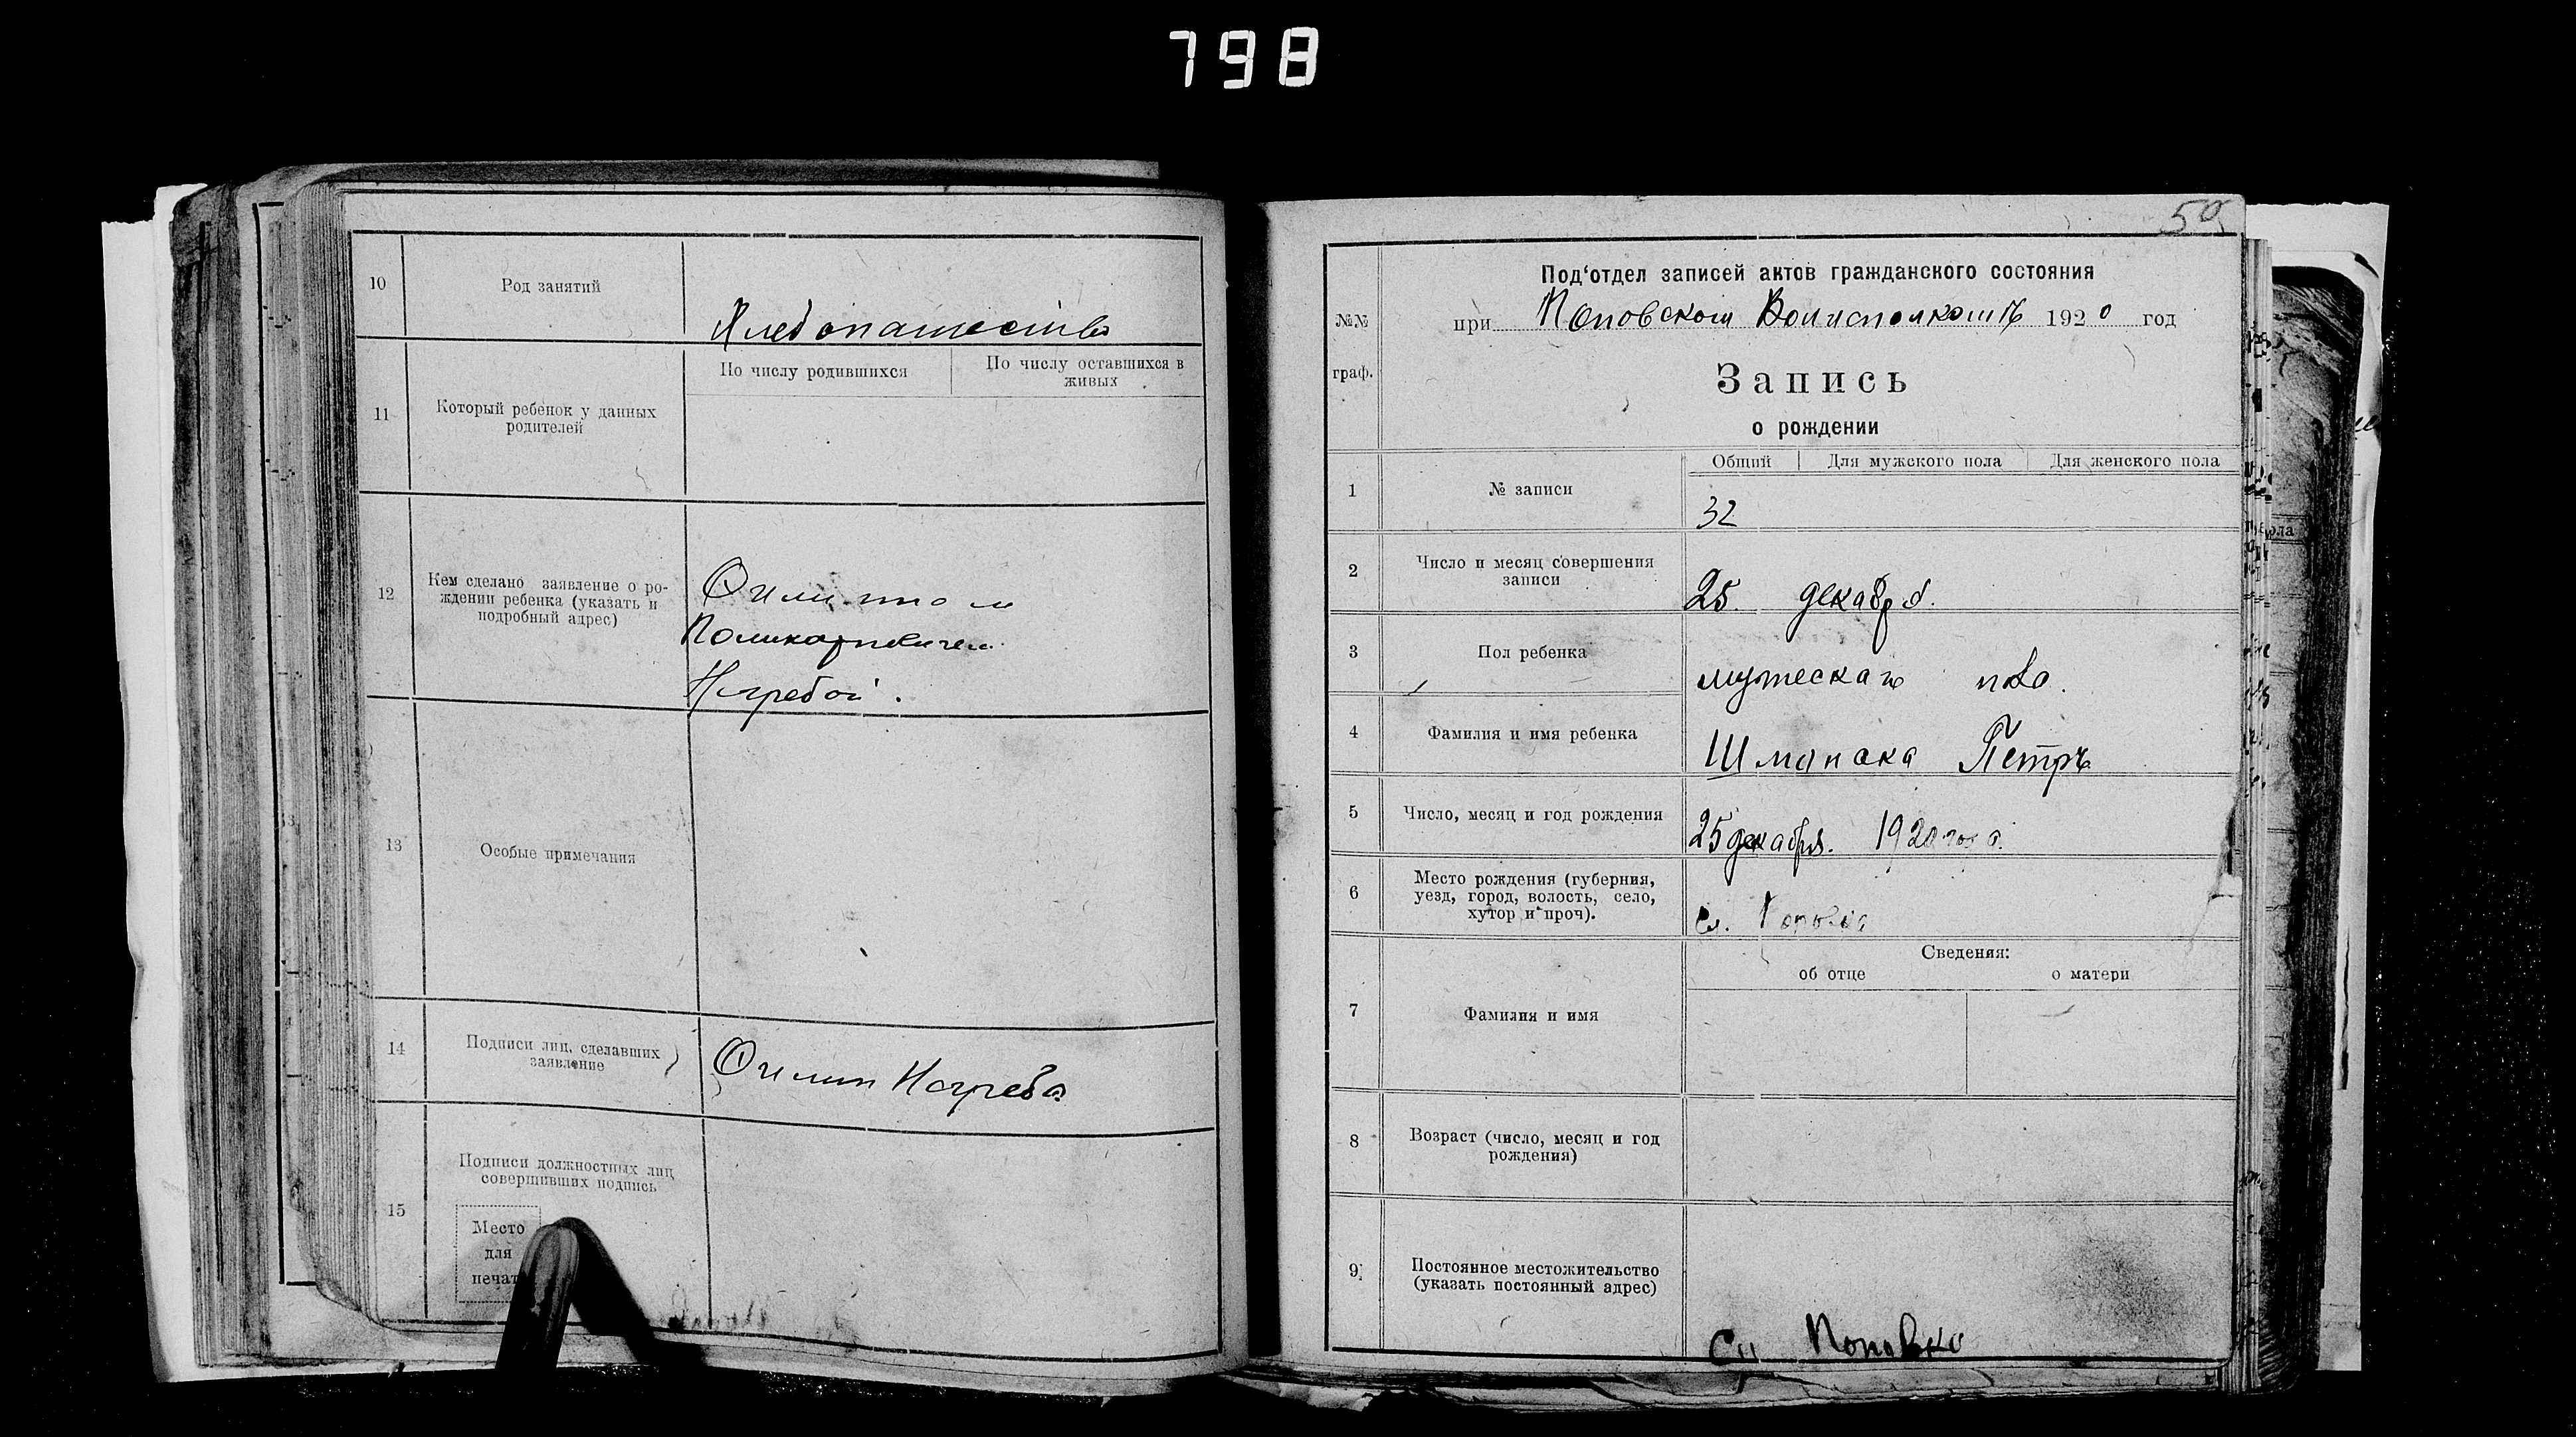 798
10
Род занятий
Хлебопашество
11
Который ребенок у данных
родителей
По числу родившихся
По числу оставшихся в
живых
12
Кем сделано заявление о ро-
ждении ребенка (указать и
подробный адрес)
Филиппом
Поликарповичем
Нагребой.
13
Особые примечания
14
Подписи лиц, сделавших
заявление
Филип Нагреба
15
Подписи должностных лиц
совершивших подпись
Место
для
печат
50
№№
граф.
Под‘отдел записей актов гражданского состояния
при Поповском Волисполкомъ 1920 год
Запись
о рождении
1
№ записи
Общий
Для мужского пола
Для женского пола
32
2
Число и месяц совершения
записи
25. декабря.
3
Пол ребенка
мужеская пола.
4
Фамилия и имя ребенка
Петръ
5
Число, месяц и год рождения
25 декабря. 1920 года.
6
Место рождения (губерния,
уезд, город, волость, село,
хутор и проч).
сл.
7
Фамилия и имя
Сведения:
об отце
о матери
8
Возраст (число, месяц и год
рождения)
9
Постоянное местожительство
(указать постоянный адрес)
Сл Поповка